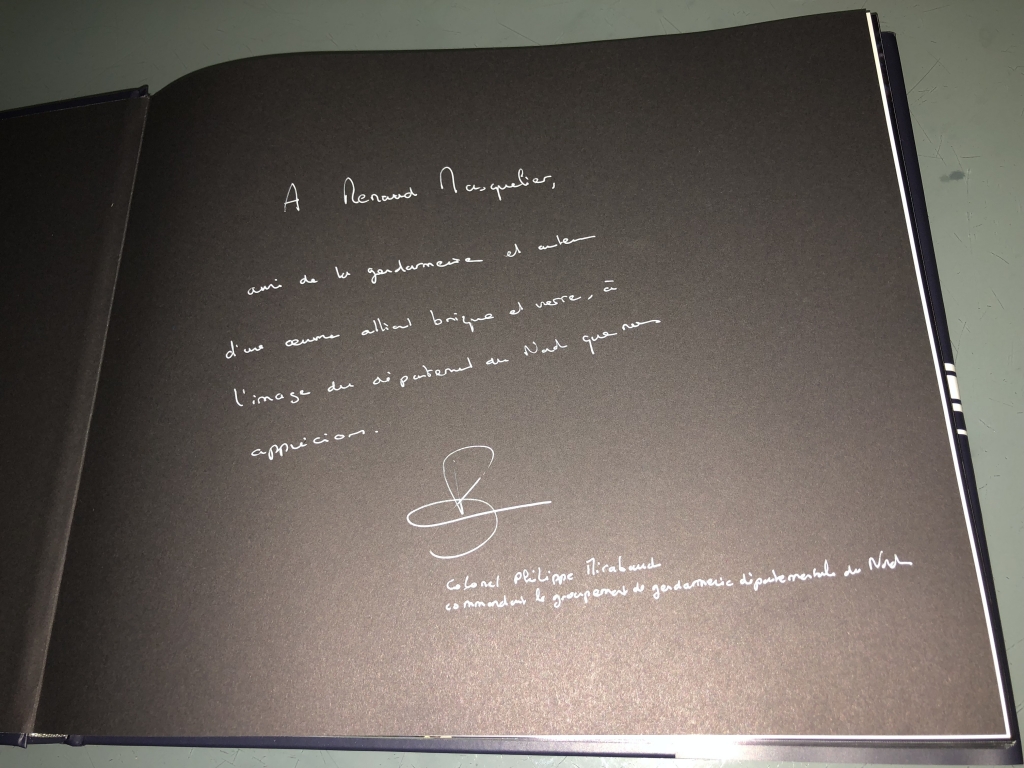 A Renaud Masquelier,
ami de la gendarmerie et auteur
d'une œuvre alliant brique et verre, à
l'image du département du Nord que nous
apprécions.
Colonel Philippe Mirabaud
commandant le groupement de gendarmerie départementale du Nord